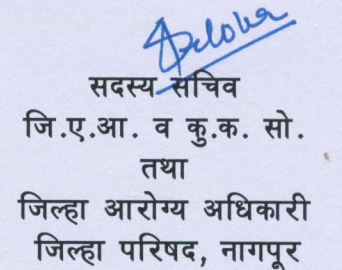 सदस्य सचिव
जि.ए.आ. व कु.क. सो.
तथा
जिल्हा आरोग्य अधिकारी
जिल्हा परिषद, नागपूर